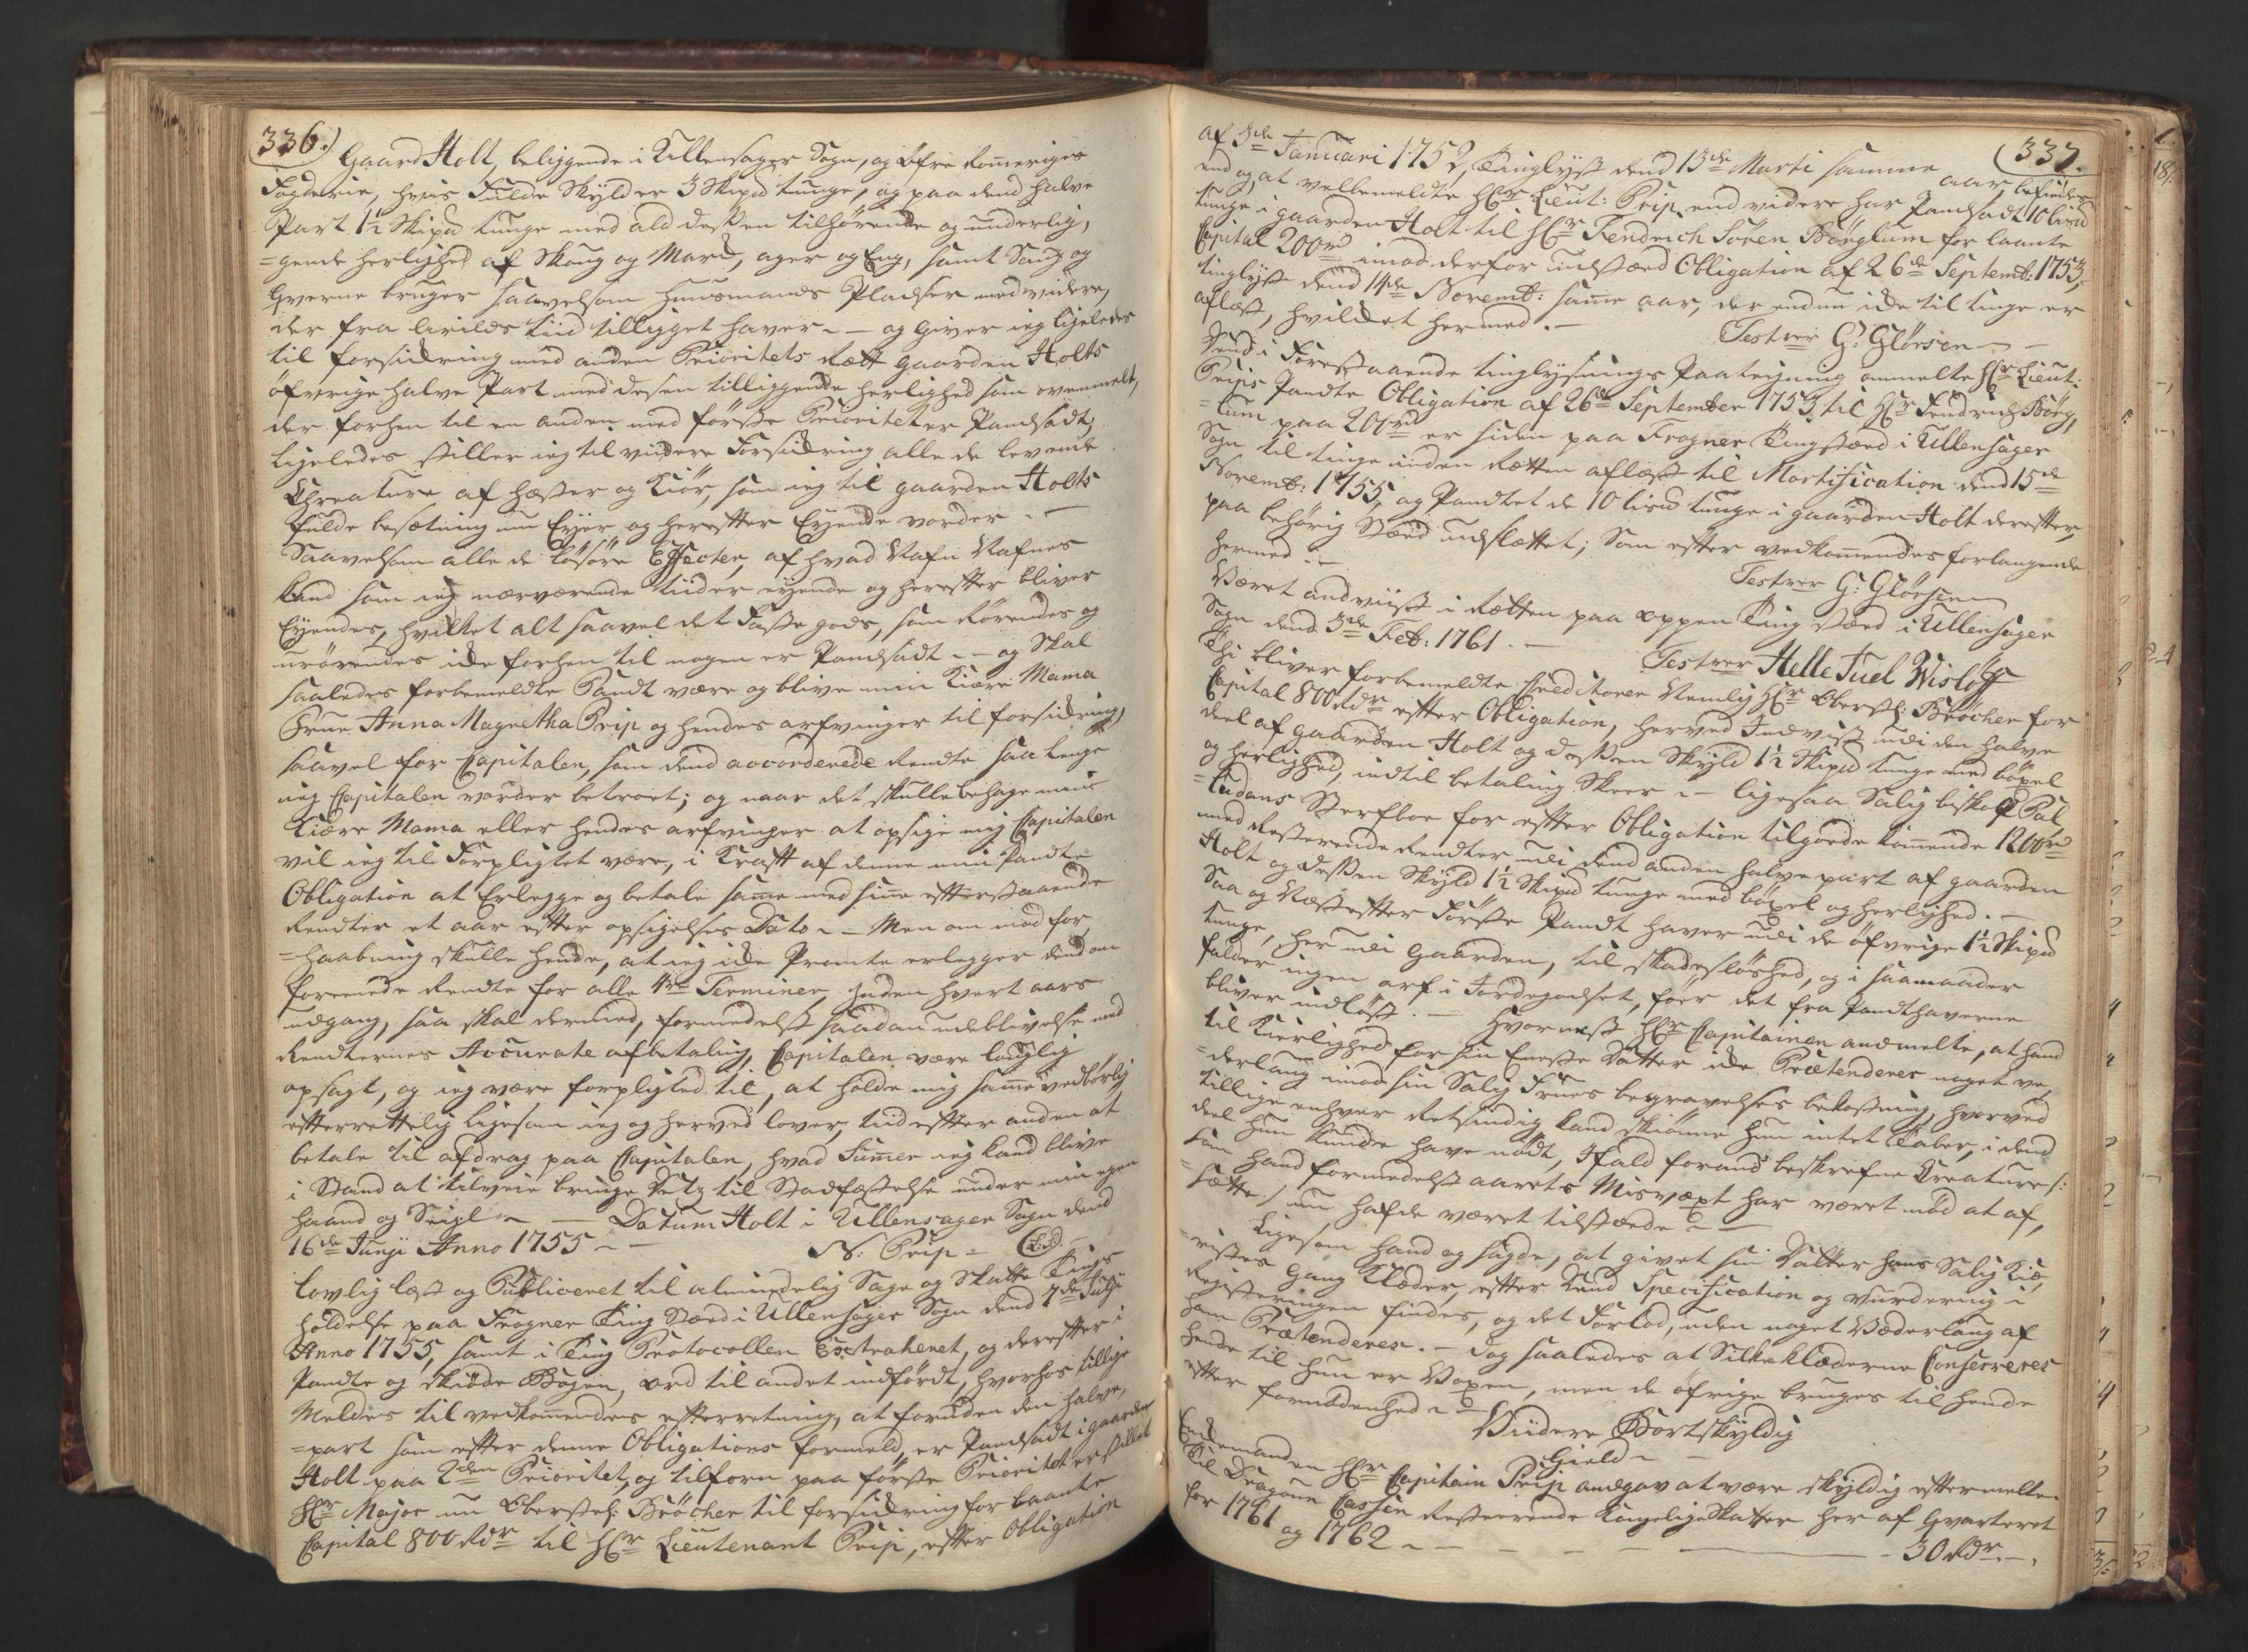 336.)
Gaard Holt, beliggende i Ullensager Sogn, og Øfre Romeriges
Fogderie, hvis Fulde Skyld er 3 Skipd tunge, og paa dend halve
Part 1½ Skipd tunge med ald dessen tilhørende og underlig,
=gende herlighed af Skoug og Mark, ager og Eng, samt Saug og
Qverne bruger saavelsom Huusmands Pladser med videre,
der fra Arilds tiid tilligget haver - og giver ieg ligeledes
til forsikring med anden Prioritets Rætt gaarden Holts
öfvrige halve Part med desen tilliggende herlighed som ovenmelt,
der forhen til en anden med förste Prioritet er Pandsadt,
Ligeledes stiller ieg til viidere Forsikring alle de levende
Chreature af Hæster og Kiör, som ieg til gaarden Holts
fulde besætning nu Eyer og herefter Eyende vorder -
Saavelsom alle de Løsöre Effecter, af hvad Nafn Nafnes
kand som ieg nærværende tiider eyende og herefter bliver
Eyendes, hvilket alt saavel det Faste gods, som Rörendes og
urörendes ikke forhen til nogen er Pandsadt - og Skal
saaledes forbemeldte Pandt være og blive min Kiære Mama
Frue Anna Magretha Prip og hendes arfvinger til forsikring,
saavel for Capitalen, som dend accorderede Rendte saa lenge
mig Capitalen vorder betroet; og naar det skulle behage min
Kiære Mama eller hendes arfvinger at opsige mig Capitalen
vil ieg til Forpligtet være, i Kraft af denne min Pandte
Obligation at Erlegge og betale samme med sine efterstaaende
Rendter et aar efter opsigelses Dato - Men om mod for,
=haabning skulle hende, at ieg ikke Promte erlegger dend om
foreenede Rendte for alle 4re Terminer inden hvert aars
udgang, saa skal dermed, formedelst saadan udeblivelse med
Rendternes Accurate afbetaling, Capitalen være lovlig
opsagt, og ieg være forpligted til, at holde mig samme vedbörlig
efterrettelig ligesom ieg og herved lover, tiid efter anden at
betale til afdrag paa Capitalen, hvad Summer ieg kand blive
i Stand at tilveie bringe dets til Stadfæstelse under min egen
haand og Seigl - Datum Holt i Ullensager Sogn dend
16de Junji Anno 1755 - N: Prip - (L:S)
Lovlig læst og Publiceret til almindelig Sage og Skatte Tings
holdelse paa Frogner Ting Stæd i Ullensager Sogn dend 7de Julji
Anno 1755, samt i Ting Protocollen Extraheret, og derefter i
Pandte og Skiöde Bogen, ord til andet indfördt, hvorhos tillige
Meldes til vedkommendes efterretning, at foruden den halve,
=part som efter denne Obligations formeld er Pandsadt i gaarden
Holt paa 2den Prioritet, og tilforn paa förste Prioritet er stillet
Hr Major nu Oberstl: Bröcher til forsikring for laante
Capital 800 Rdr til Hr Lieutenant Prip, efter Obligation
(337.
af 3de Januari 1752, Tinglyst dend 13de Marti samme aar, befindes
end og, at velbemeldte Hr Lieut: Prip end videre har Pandsadt 10 lispd
tunge i gaarden Holt til Hr Fendrich Sören Börglum for laante
Capital 200rd imod derfor udstæd Obligation af 26de Septemb: 1753,
tinglyst dend 14de Novemb: same aar, der endnu ikke til tinge er
aflæst, hvilket hermed. -
Testerer G: Glörsen - -
Dend i Forestaaende tinglysnings Paategning ommelte Hr Lieut:
Prips Pandte Obligation af 26de September 1753 til Hr Fendrich Börg,
=lum paa 200rd er siden paa Frogner Tingstæd i Ullensager
Sogn til tinge inden Rætten aflæst til Mortification dend 15de
Novemb: 1755, og Pandtet de 10 lispd tunge i gaarden Holt derefter,
paa behörig Stæd udslættet; Som efter vedkommendes forlangende
hermed -
Testerer G: Glörsen
Været andviist i Rætten paa oppen Ting stæd i Ullensager
Sogn dend 3de Feb: 1761. -
Testerer Helle Juel Wisløff
Thi bliver forbemeldte Creditorer Nemlig Hr Oberstl: Bröcher for
Capital 800 Rdr efter Obligation, herved Indviist udi den halve
deel af gaarden Holt og dessen Skyld 1½ Skipd tunge med böxel
og herlighed, indtil betaling Skeer - ligesaa Salig biskop Pal
=ludans Sterfboe for efter Obligation tilgoede kommende 1200rd
med Resterende Rendter udi dend anden halve part af gaarden
Holt og dessen Skyld 1½ Skipd tunge med böxel og herlighed. -
Saa og Næst efter Förste Pandt haver udi de öfvrige 1½ Skipd
tunge, her udi Gaarden, til skadeslöshed, og i saamaader
falder ingen arf i Jordegodset, förr det fra Pandthaverne
bliver indlöst. - Hvornest Hr Capitainen anmelte, at hand
til Kierlighed for sin Eneste datter ikke Prætenderer noget ve,
=derlaug imod sin Salig Frues begravelses bekostning, hvorved
tillige enhver Retsindig kand skiönne hun intet Taber, i dend
deel hun kunde have nödt, Ifald forand beskrefne Creature /:
som hand formedelst aarets Misvæxt har været nöd at af,
=sætte :/ nu hafde været tilstæde -
Ligesom hand og sagde, at givet sin Datter hans Salig Kiæ,
=ristes Gang Klæder, efter dend Specification og vurdering i
Registeringen findes, og det forlod, uden noget Væderlaug af
ham Prætenderes. - dog saaledes at Silkeklæderne Conserveres
hende til hun er Voxen, men de öfrige bruges til hende
efter fornödenhed -
Viidere Bortskyldig
Gield -
Enkemanden Hr Capitain Prip andgav at være skyldig eftermelte.
Til Dragoun Cassen Resterende Kongelige Skatter her af Qvarteret
for 1761 og 1762 - - - - - 30 Rdr. -.